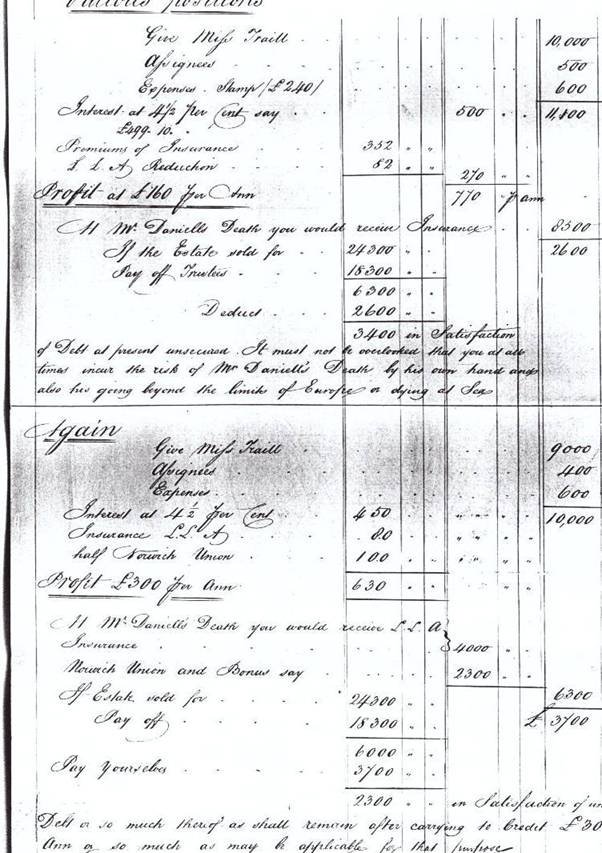 Various positions
Give Miss Traill . . . . . . 10,000
Assignees . . . . . . 500
Expenses - Stamp /£240/ . . . . 600
Interest at 4½ per Cent say . . 500 . . 11,100
£499.10. .
Premiums of Insurance . . 352 " "
L L A Reduction . . . 82 " . 270 " .
Profit at £160 per Ann 770 pr ann
If Mr Daniell's Death you would receive Insurance . . 8500
If the Estate sold for . . 24300 " . 2600
Pay off Trustees . . . 18300 . .
6300 . .
Deduct . . . 2600 . .
3400 in Satisfaction
of Debt at present unsecured. It must not be overlooked that you at all
times incur the risk of Mr Daniell's Death by his own hand and
also his going beyond the limits of Europe or dying at Sea
Again
Give Miss Traill . . . . . 9000
Assignees . . . . . 400
Expenses . . . . . 600
Interest at 4½ per Cent . . 450 . . " " . 10,000
Insurance L.L. A . . . 80 . .
half Norwich Union . . . 100 . .
Profit £300 per Ann 630 . .
If Mr Daniell's Death you would receive L L A
Insurance . . . . . 4000 " .
Norwich Union and Bonus say . . . 2300 . .
If Estate sold for . . . . 24300 " . 6300
Pay off . . . . 18300 " " £ 3700
6000 . .
Pay Yourselves . . . . 3700 " .
2300 " " in Satisfaction of
Debt or so much thereof as shall remain after carrying to Credit £30
Ann or so much as may be applicable for that purpose